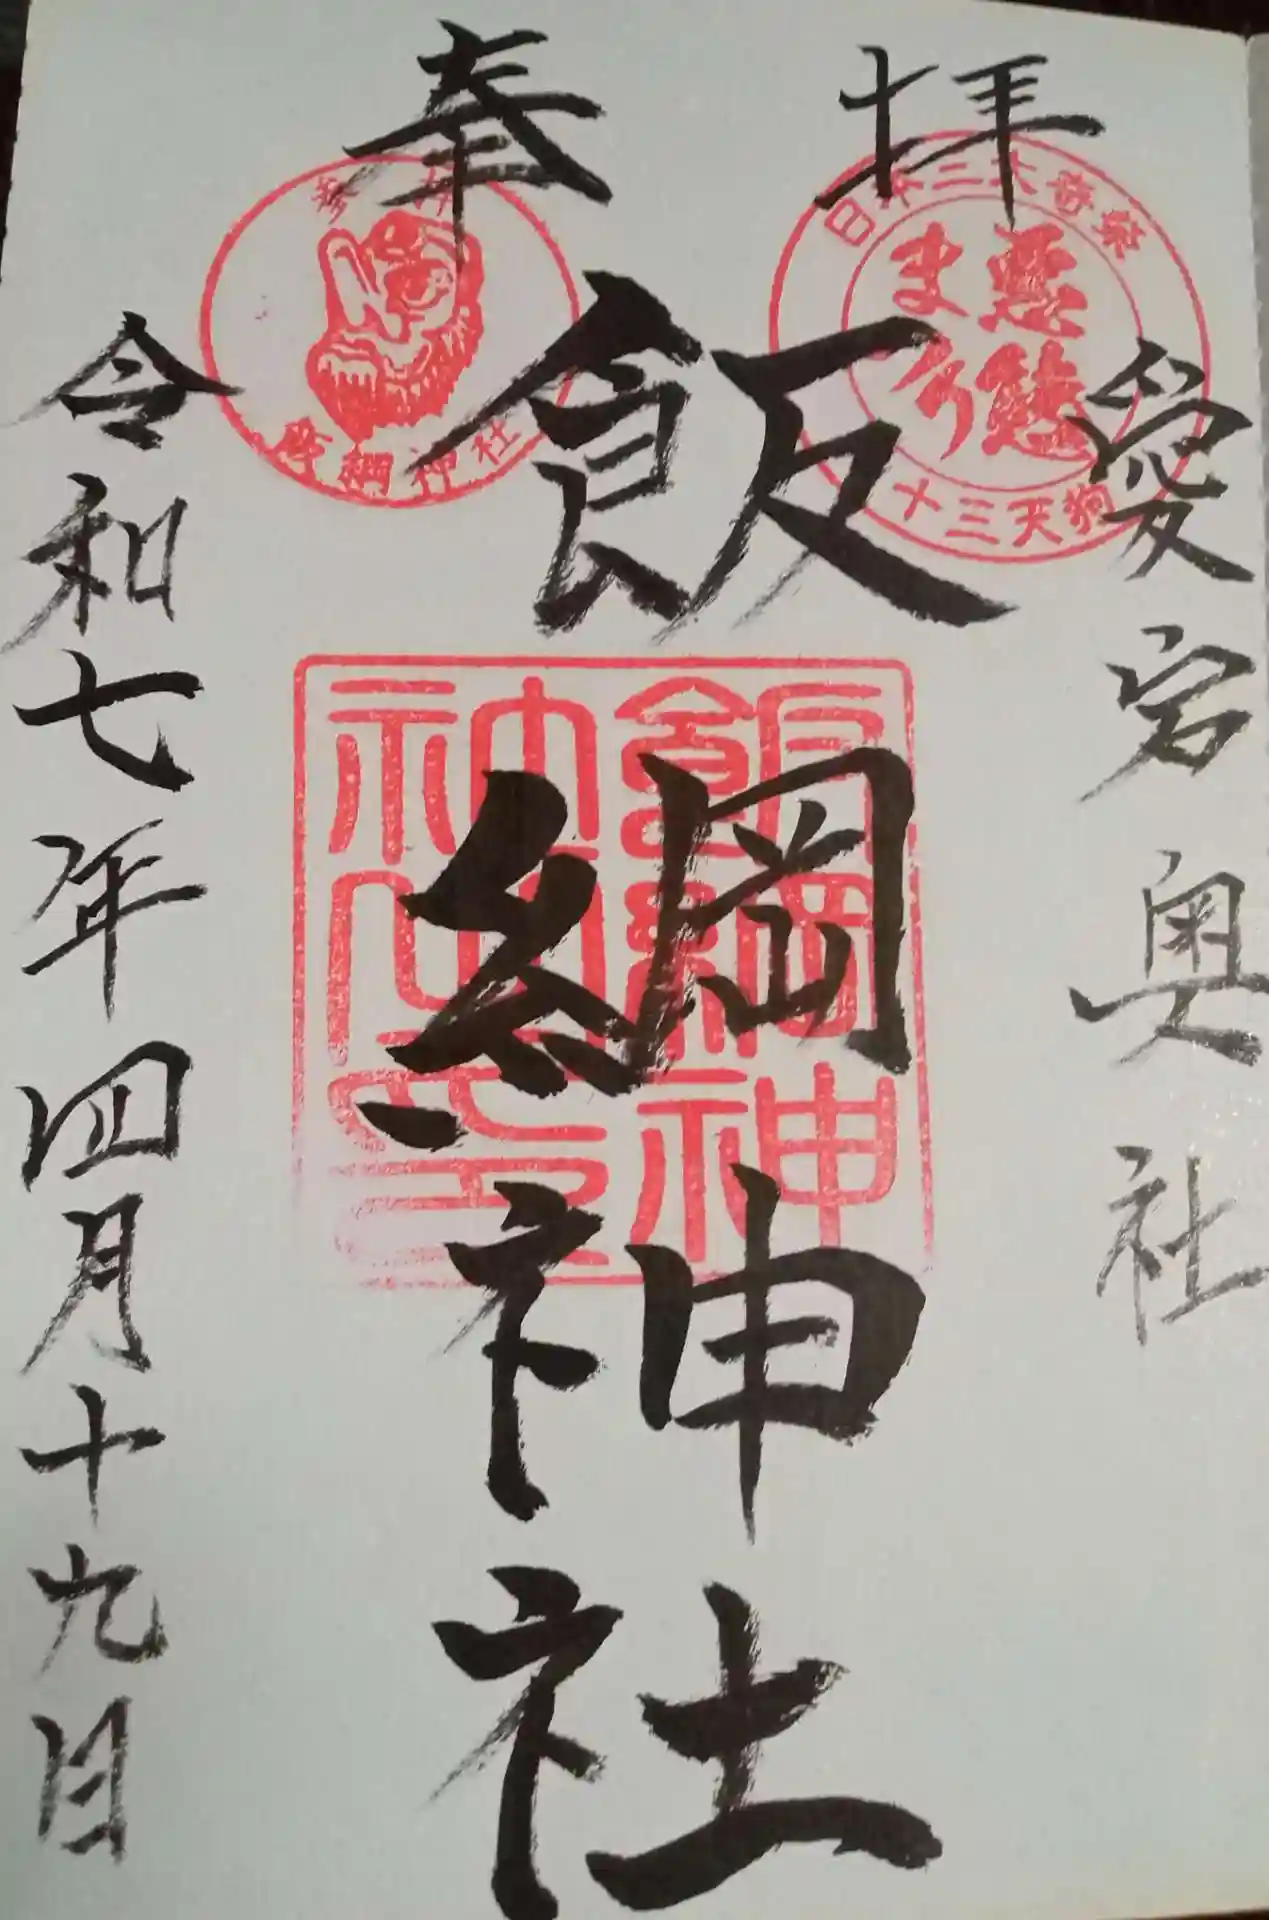 奉拝
日本二大奇祭
悪態
まつり
十三天狗
愛宕奥社
参拝
飯綱神社
飯綱神社
飯綱神
社之印
令和七年四月十九日